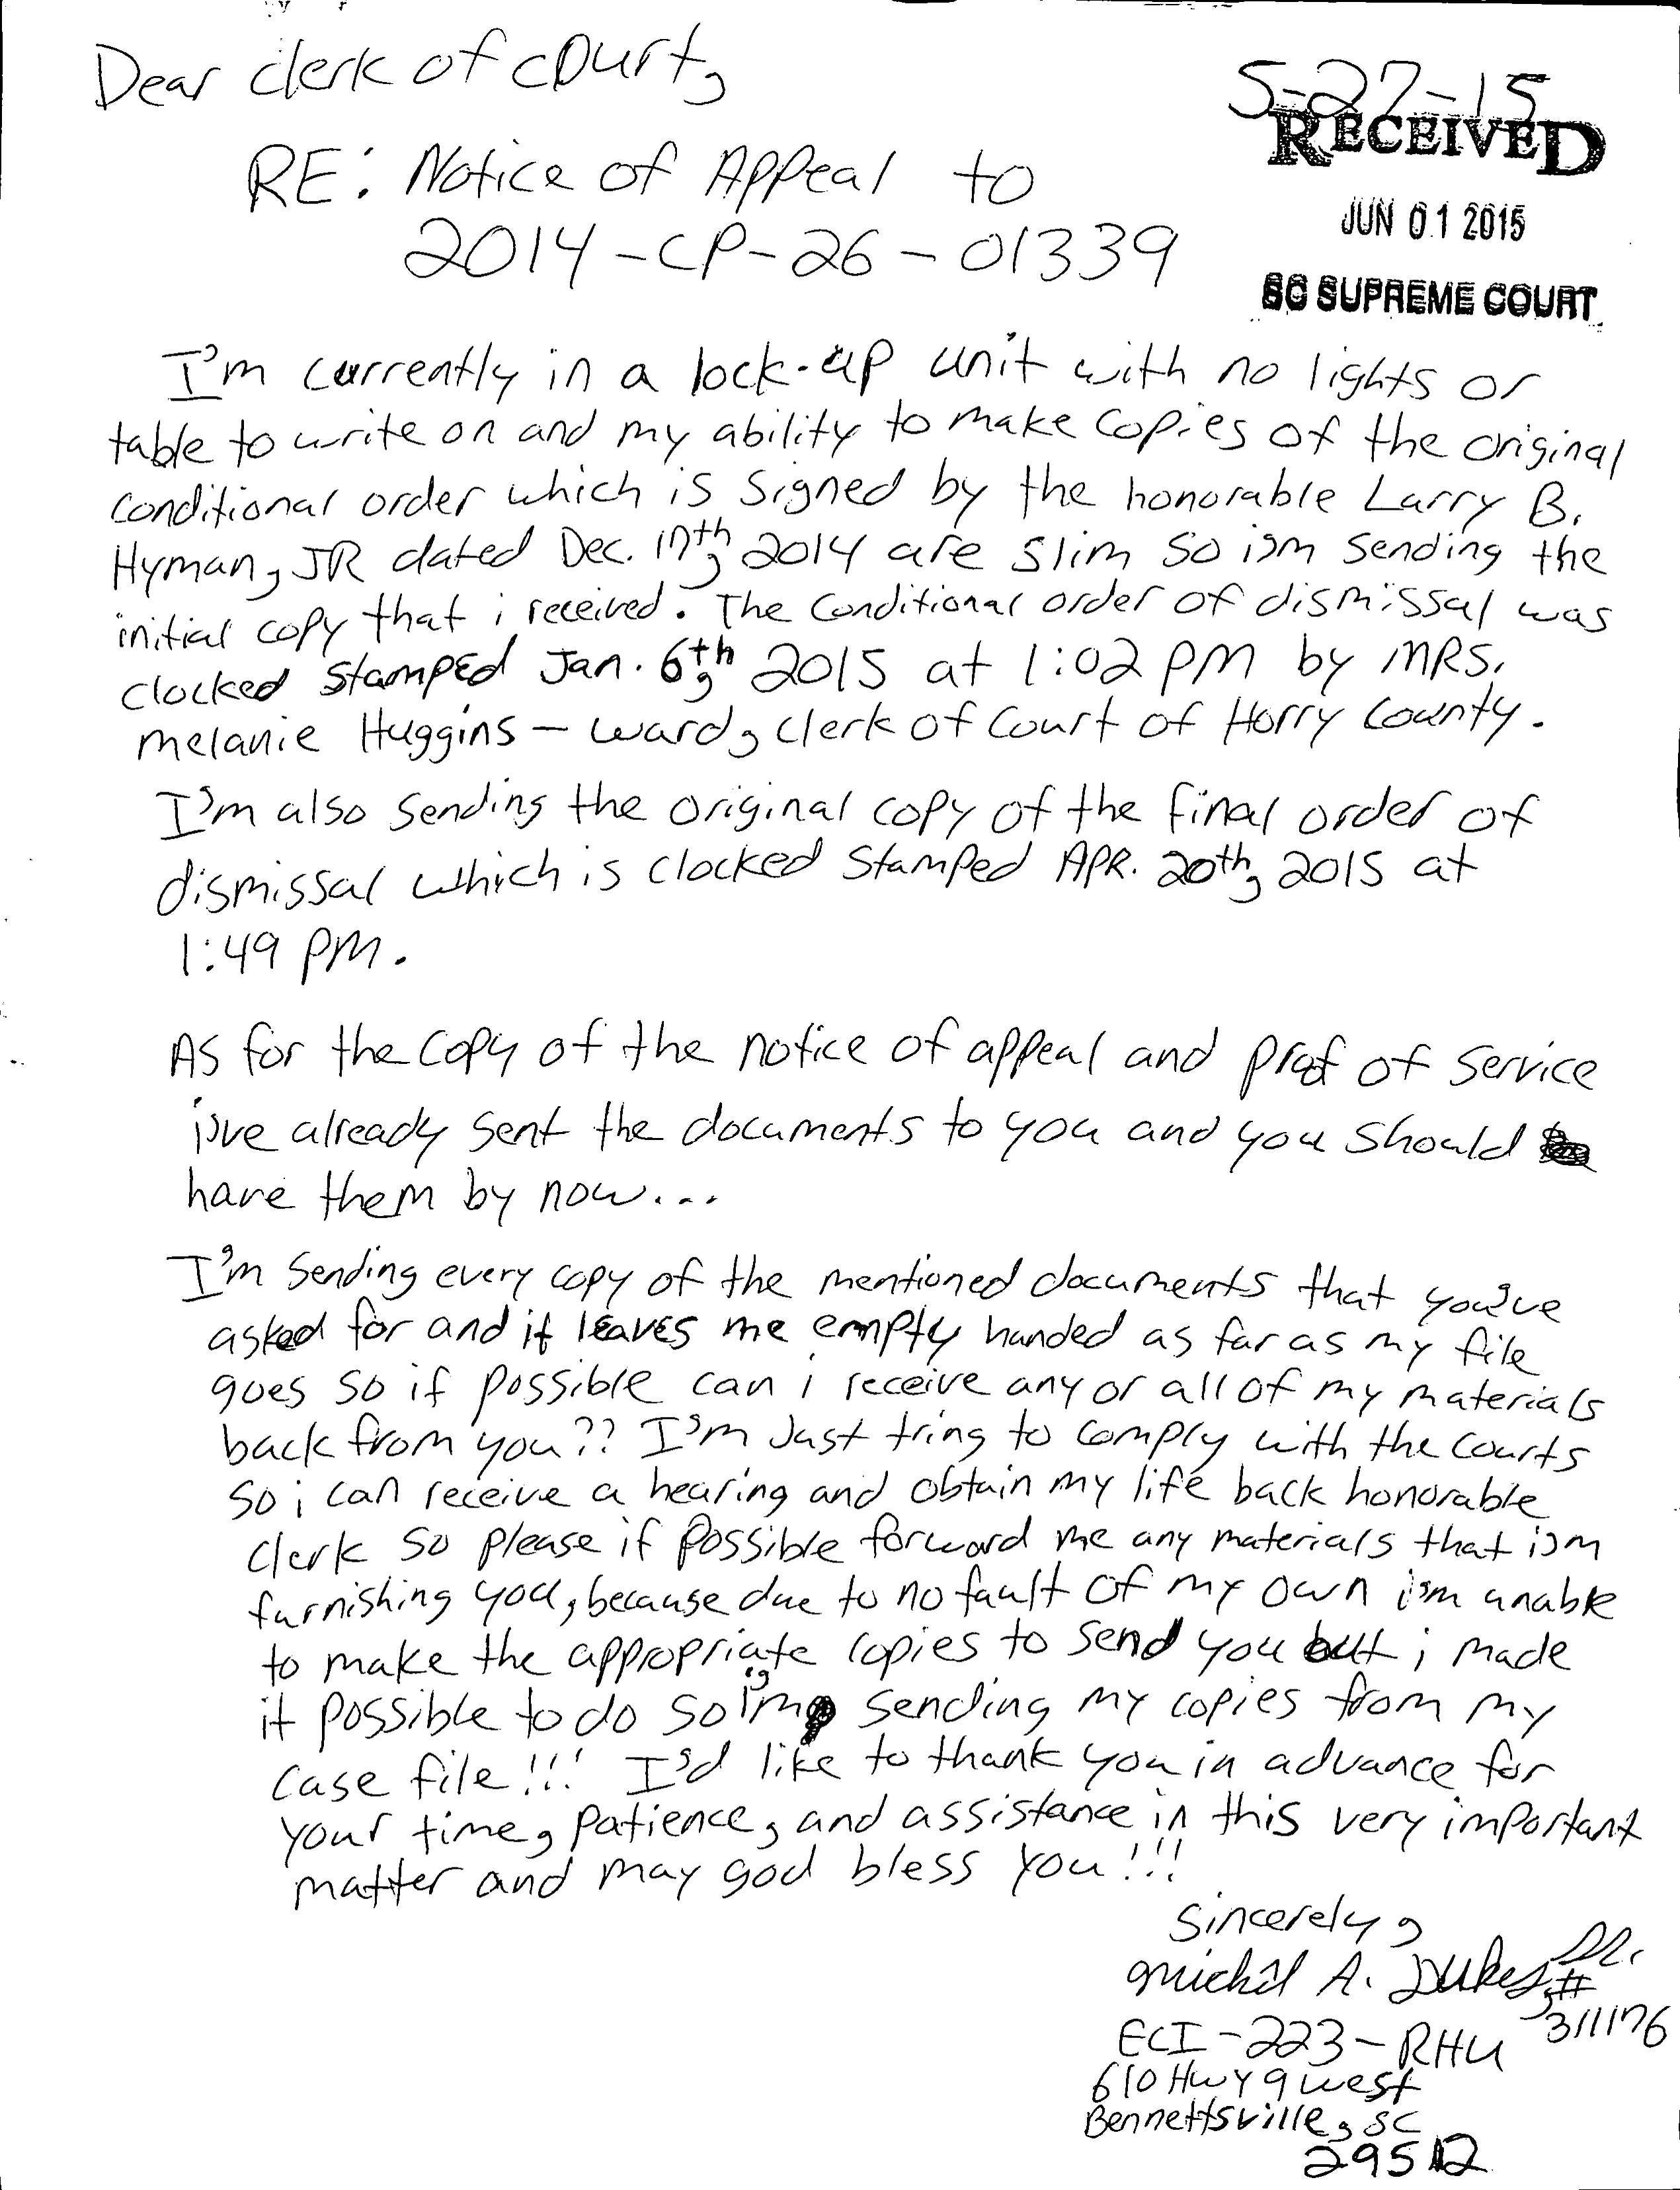 Dear clerk of court,
5-27-15
RECEIVED
JUN 01 2015
SC SUPREME COURT
RE: Notice of Appeal to
2014-CP-26-01339
I'm currently in a lock-up unit with no lights or
table to write on and my ability to make copies of the original
conditional order which is signed by the honorable Larry B.
Hyman, JR dated Dec. 17th, 2014 are slim so i'm sending the
initial copy that i received. The conditional order of dismissal was
clocked stamped Jan. 6th, 2015 at 1:02 PM by MRS.
Melanie Huggins-Ward, clerk of court of Horry County.
I'm also sending the original copy of the final order of
dismissal which is clocked stamped APR. 20th, 2015 at
1:49 PM.
As for the copy of the notice of appeal and proof of service
i've already sent the documents to you and you should
have them by now...
I'm sending every copy of the mentioned documents that you've
asked for and it leaves me empty handed as far as my file
goes so if possible can i receive any or all of my materials
back from you?? I'm Just tring to comply with the courts
so i can receive a hearing and obtain my life back honorable
clerk so please if possible forward me any materials that i'm
furnishing you, because due to no fault of my own i'm unable
to make the appropriate copies to send you but i made
it possible to do so i'm sending my copies from my
case file!!! I'd like to thank you in advance for
your time, patience, and assistance in this very important
matter and may god bless you!!!
Sincerely,
Michal A. Dukes, Sr.
#311176
ECI-223-RHU
610 Hwy 9 west
Bennettsville, SC
29512